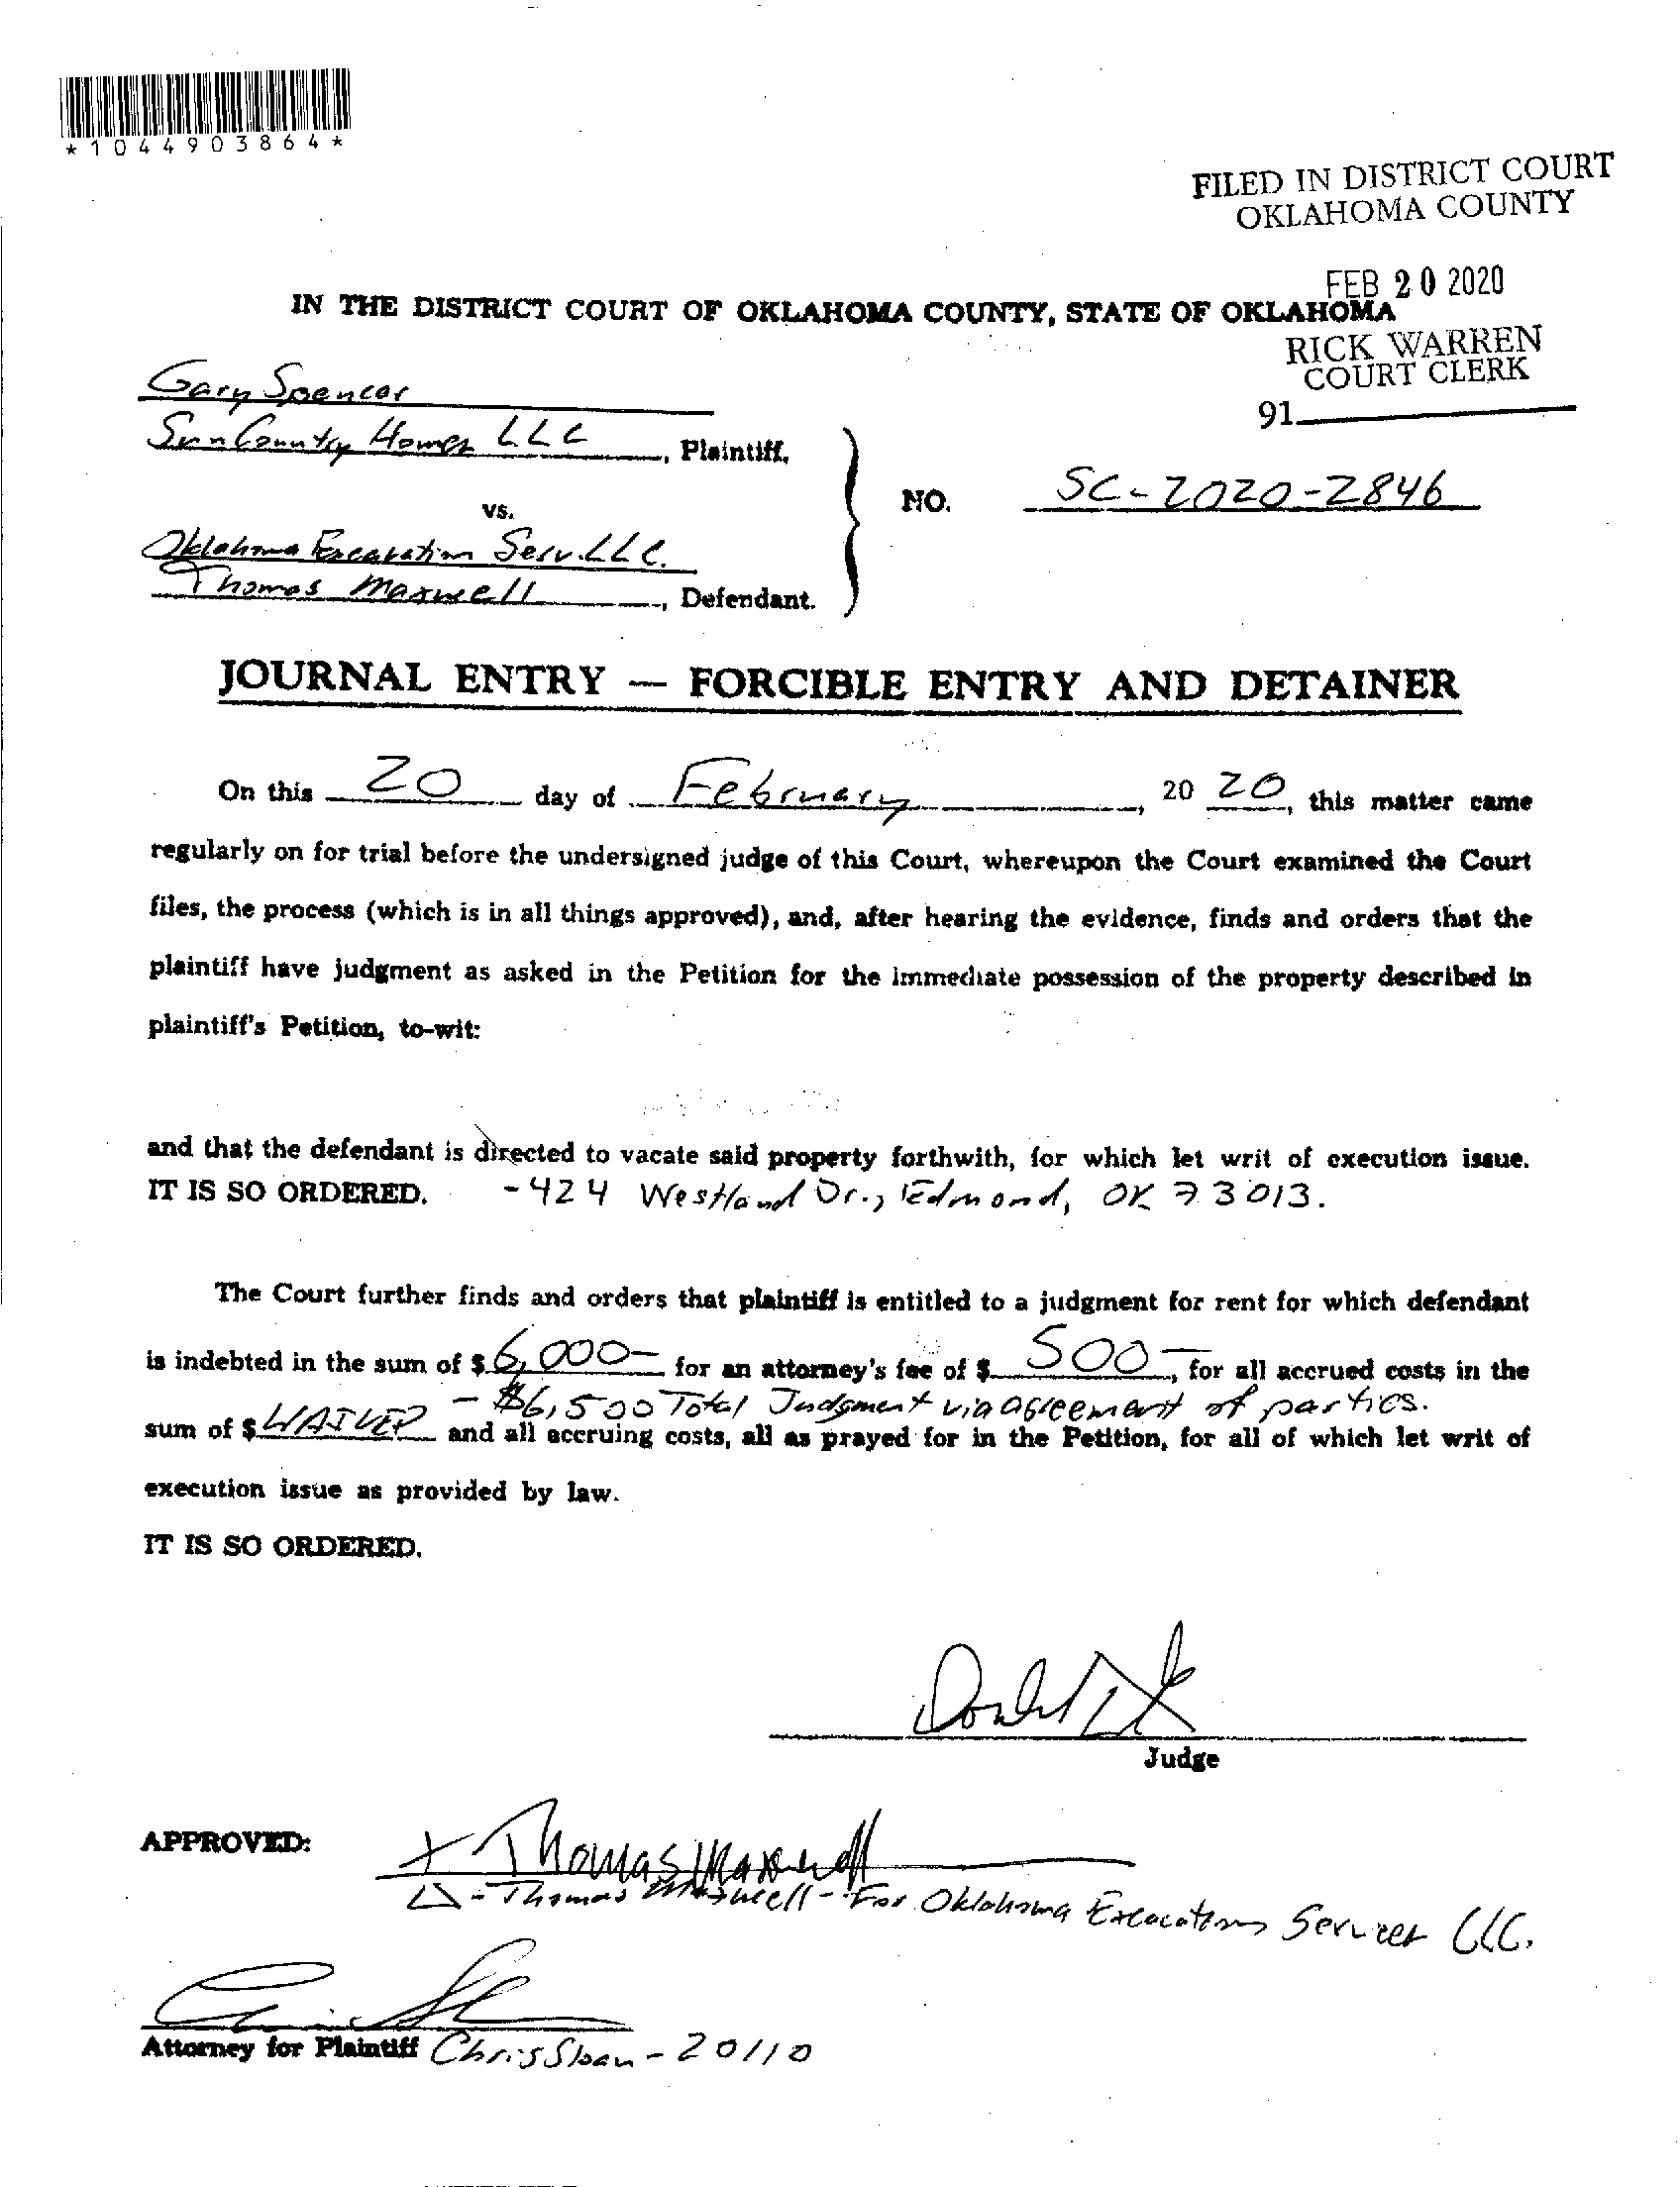 *1044903864*
FILED IN DISTRICT COURT
OKLAHOMA COUNTY
FEB 20 2020
IN THE DISTRICT COURT OF OKLAHOMA COUNTY, STATE OF OKLAHOMA
RICK WARREN
COURT CLERK
91
Gary Spencer
Sun Country Homes LLC, Plaintiff,
NO. SC-2020-2846
vs.
Oklahoma Excavation Serv. LLC.
Thomas Maxwell, Defendant.
JOURNAL ENTRY — FORCIBLE ENTRY AND DETAINER
On this 20 day of February, 20 20, this matter came
regularly on for trial before the undersigned judge of this Court, whereupon the Court examined the Court
files, the process (which is in all things approved), and, after hearing the evidence, finds and orders that the
plaintiff have judgment as asked in the Petition for the immediate possession of the property described in
plaintiff's Petition, to-wit:
and that the defendant is directed to vacate said property forthwith, for which let writ of execution issue.
IT IS SO ORDERED. - 424 Westland Dr., Edmond, OK 73013.
The Court further finds and orders that plaintiff is entitled to a judgment for rent for which defendant
is indebted in the sum of $ 6,000- for an attorney's fee of $ 500-, for all accrued costs in the
- $6,500 Total Judgment via agreement of parties.
sum of $ WAIVED and all accruing costs, all as prayed for in the Petition, for all of which let writ of
execution issue as provided by law.
IT IS SO ORDERED.
Judge
APPROVED: x Thomas Maxwell
Δ - Thomas Maxwell - For Oklahoma Excavations Services LLC.
Attorney for Plaintiff Chris Sloan - 20110